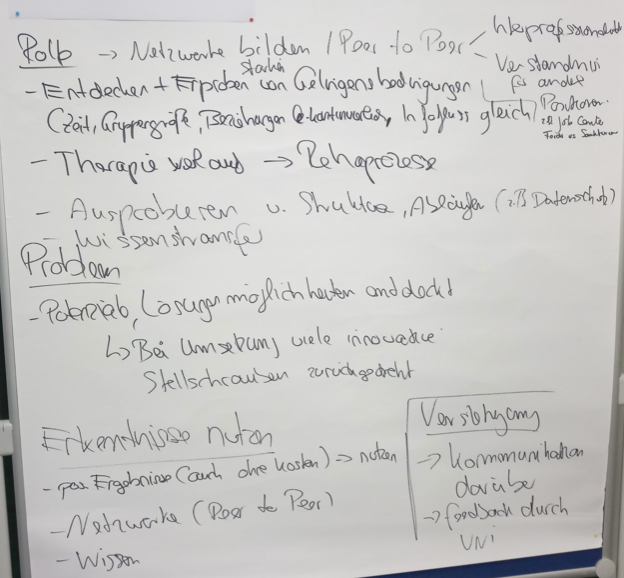 Rolle → Netzwerke bilden / Peer to Peer
Verständnis
für andere
Positionen
stärken
- Entdecken + Erproben von Gelingensbedingungen
(Zeit, Gruppengröße, Beziehungen
- Therapieverlauf → Rehaprozesse
- Ausprobieren v. Struktur, Abläufen (z.B Datenschutz)
- Wissenstransfer
Problem
- Potenziale, Lösungsmöglichkeiten entdeckt
↳ Bei Umsetzung viele innovative
Stellschrauben zurückgedreht
Erkenntnisse nutzen
- pos. Ergebnisse (auch ohne Kosten) → nutzen
- Netzwerke (Peer to Peer)
- Wissen
Verstetigung
→ Kommunikation
darüber
→ feedback durch
UNI